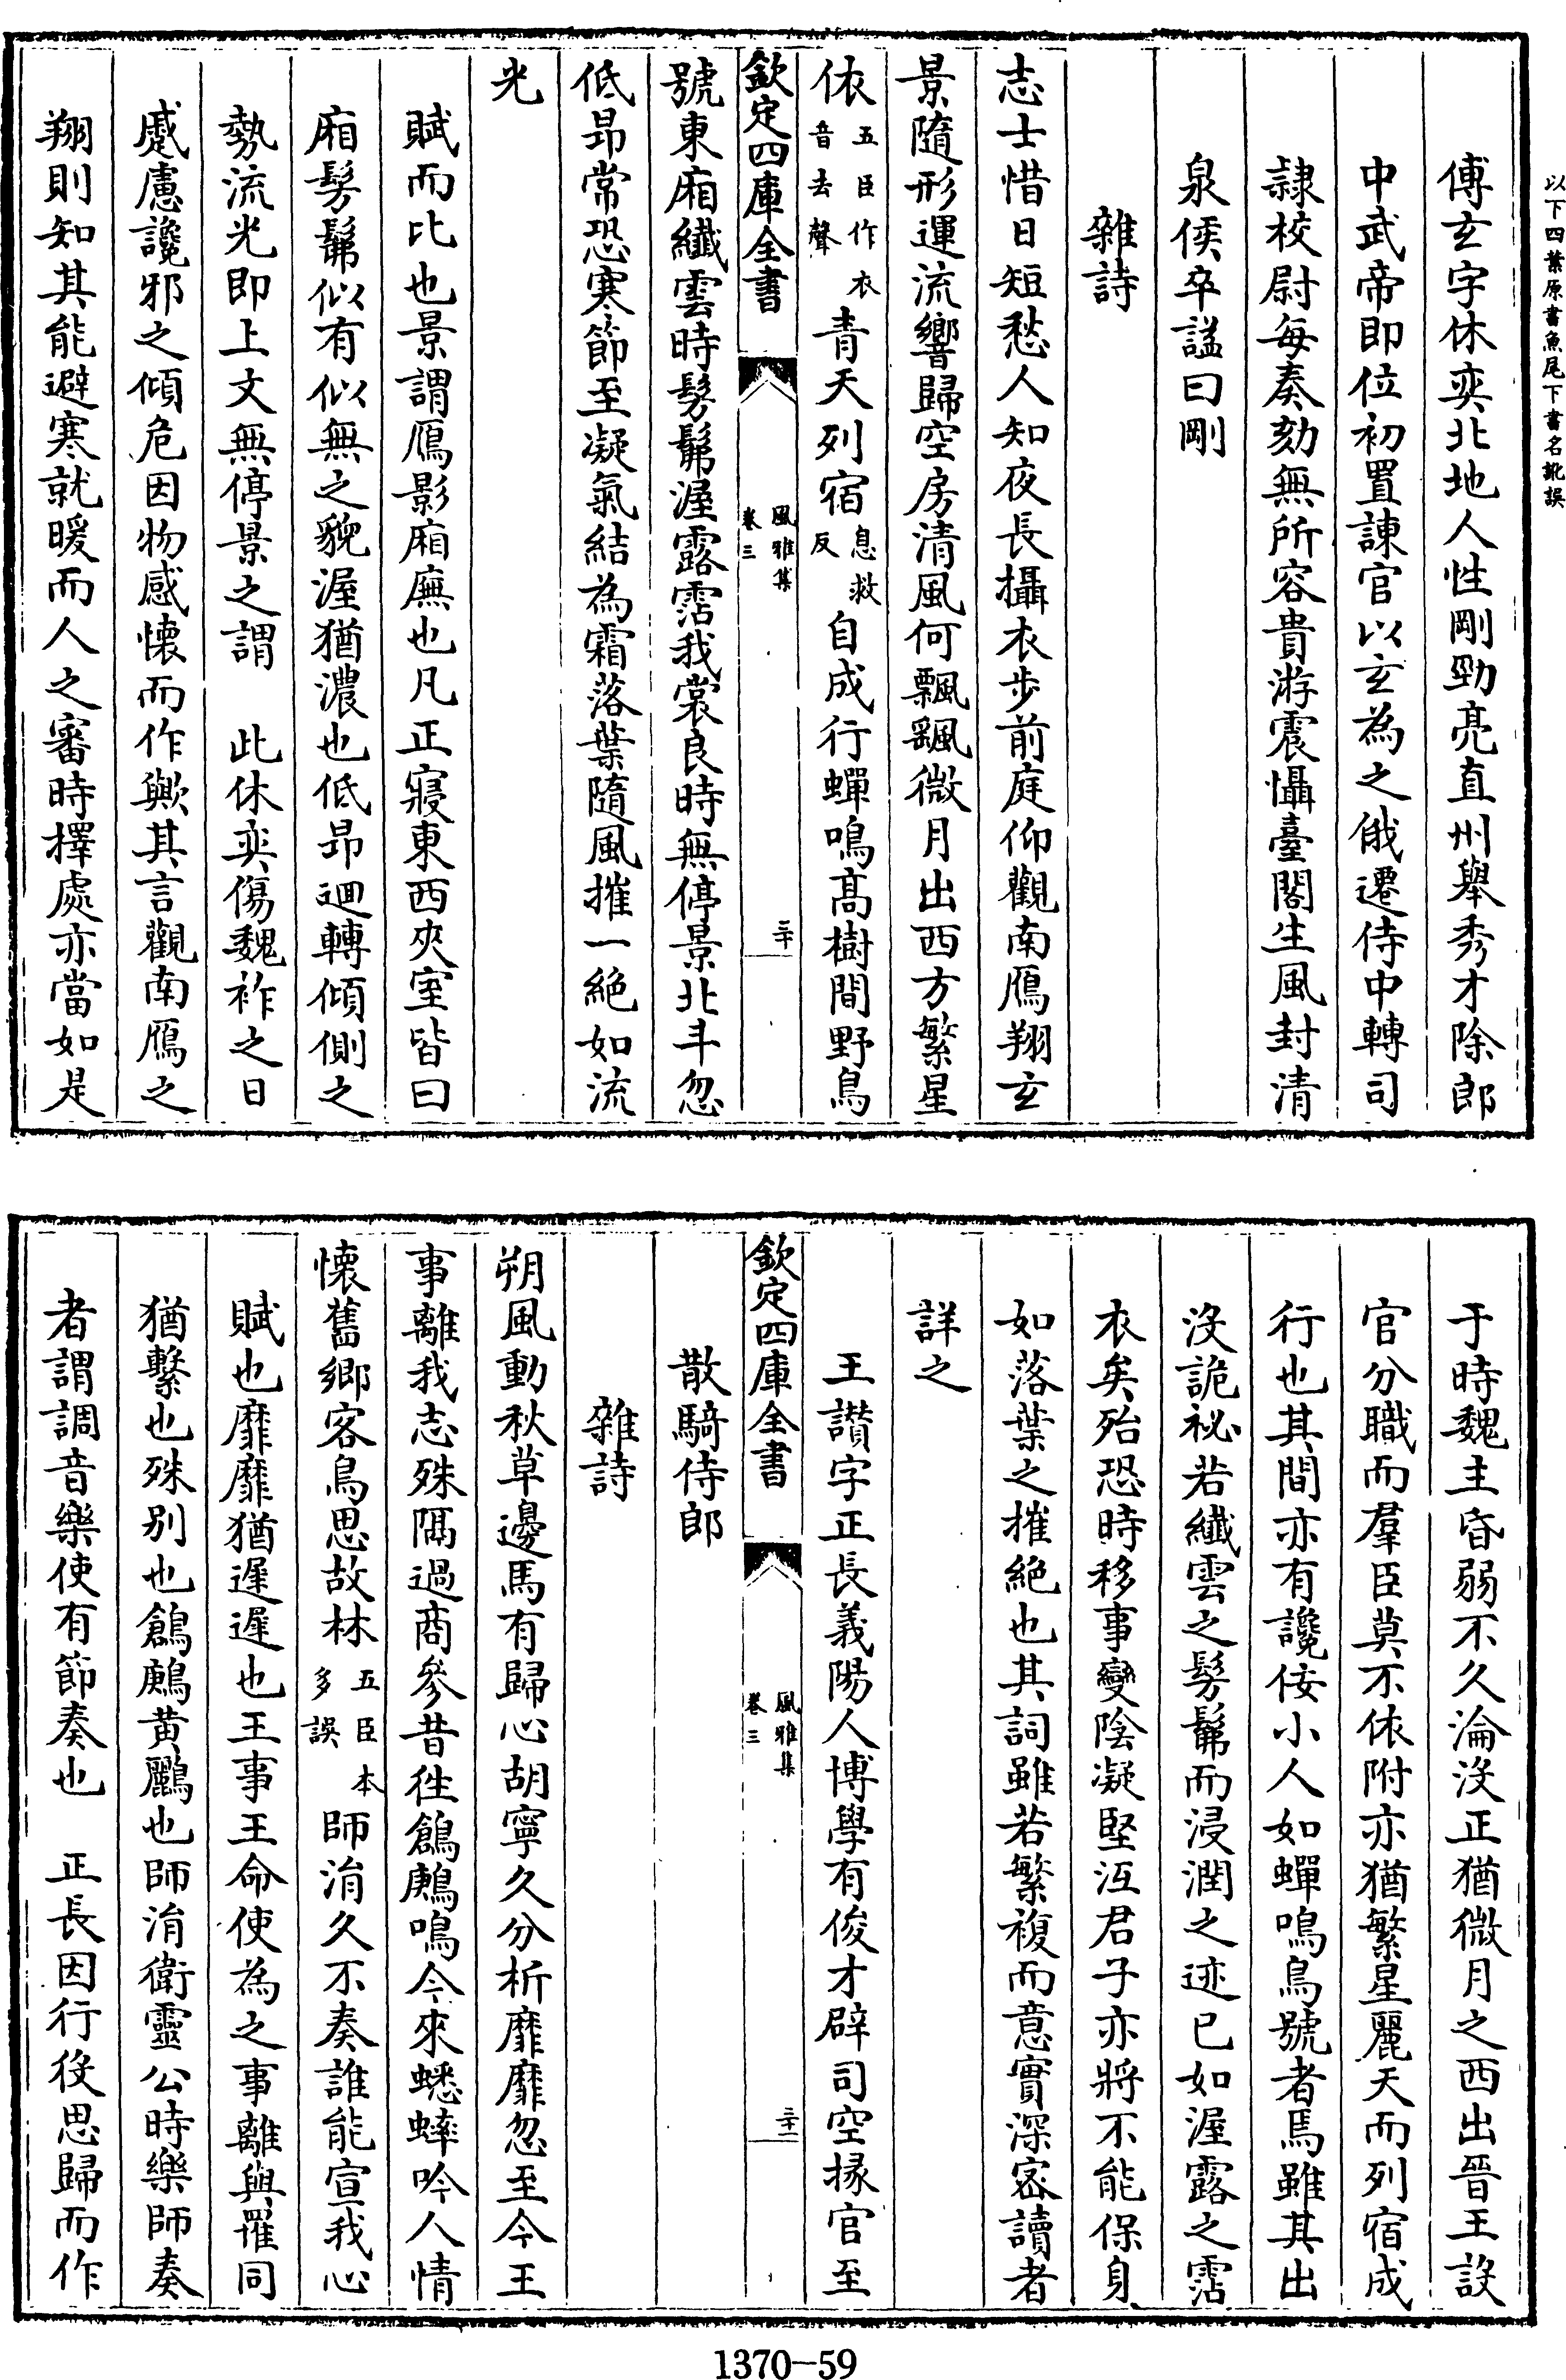 以下四葉原書魚尾下書名訛誤
傅玄字休奕北地人性剛勁亮直州舉秀才除郎
中武帝即位初置諫官以玄為之俄遷侍中轉司
隷校尉每奏劾無所容貴游震懾臺閣生風封清
泉侯卒謚曰剛
雜詩
志士惜日短愁人知夜長攝衣步前庭仰觀南鴈翔玄
景隨形運流響歸空房清風何飄颻微月出西方繁星
依五臣作衣音去聲青天列宿息救反自成行蟬鳴髙樹間野鳥
欽定四庫全書
風雅集
卷三
三十
號東廂纖雲時髣髴渥露霑我裳良時無停景北斗忽
低昻常恐寒節至凝氣結為霜落葉隨風摧一絶如流
光
賦而比也景謂鴈影廂廡也凡正寢東西夾室皆曰
廂髣髴似有似無之貌渥猶濃也低昻迴轉傾側之
勢流光即上文無停景之謂　此休奕傷魏祚之日
蹙慮讒邪之傾危因物感懐而作歟其言觀南鴈之
翔則知其能避寒就暖而人之審時擇處亦當如是
于時魏主昏弱不久淪沒正猶微月之西出晉王設
官分職而羣臣莫不依附亦猶繁星麗天而列宿成
行也其間亦有讒佞小人如蟬鳴鳥號者焉雖其出
沒詭祕若纖雲之髣髴而浸潤之迹已如渥露之霑
衣矣殆恐時移事變陰凝堅冱君子亦將不能保身
如落葉之摧絶也其詞雖若繁複而意實深宻讀者
詳之
王讃字正長義陽人博學有俊才辟司空掾官至
欽定四庫全書
風雅集
卷三
三十一
散騎侍郎
雜詩
朔風動秋草邊馬有歸心胡寧久分析靡靡忽至今王
事離我志殊隔過商參昔徃鶬鶊鳴今來蟋蟀吟人情
懐舊鄉客鳥思故林五臣本多誤師涓久不奏誰能宣我心
賦也靡靡猶遲遲也王事王命使為之事離與罹同
猶繫也殊别也鶬鶊黄鸝也師涓衛靈公時樂師奏
者謂調音樂使有節奏也　正長因行役思歸而作
1370—59